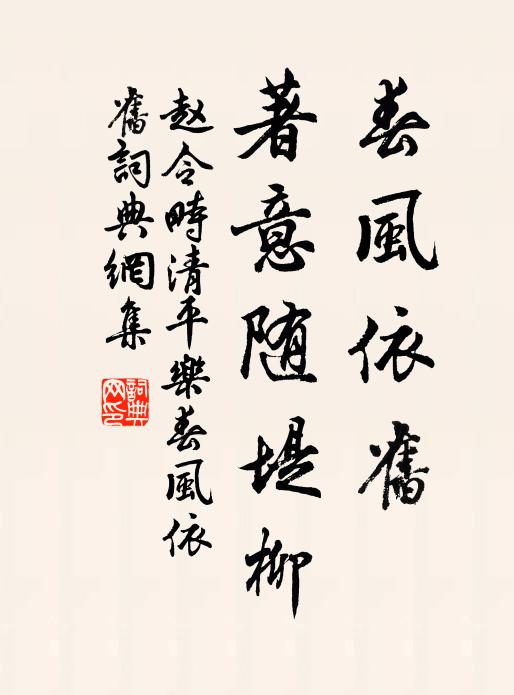 春風依舊
著意隨堤柳
赵令畤清平樂春風依
舊詞典網集
詞典網印